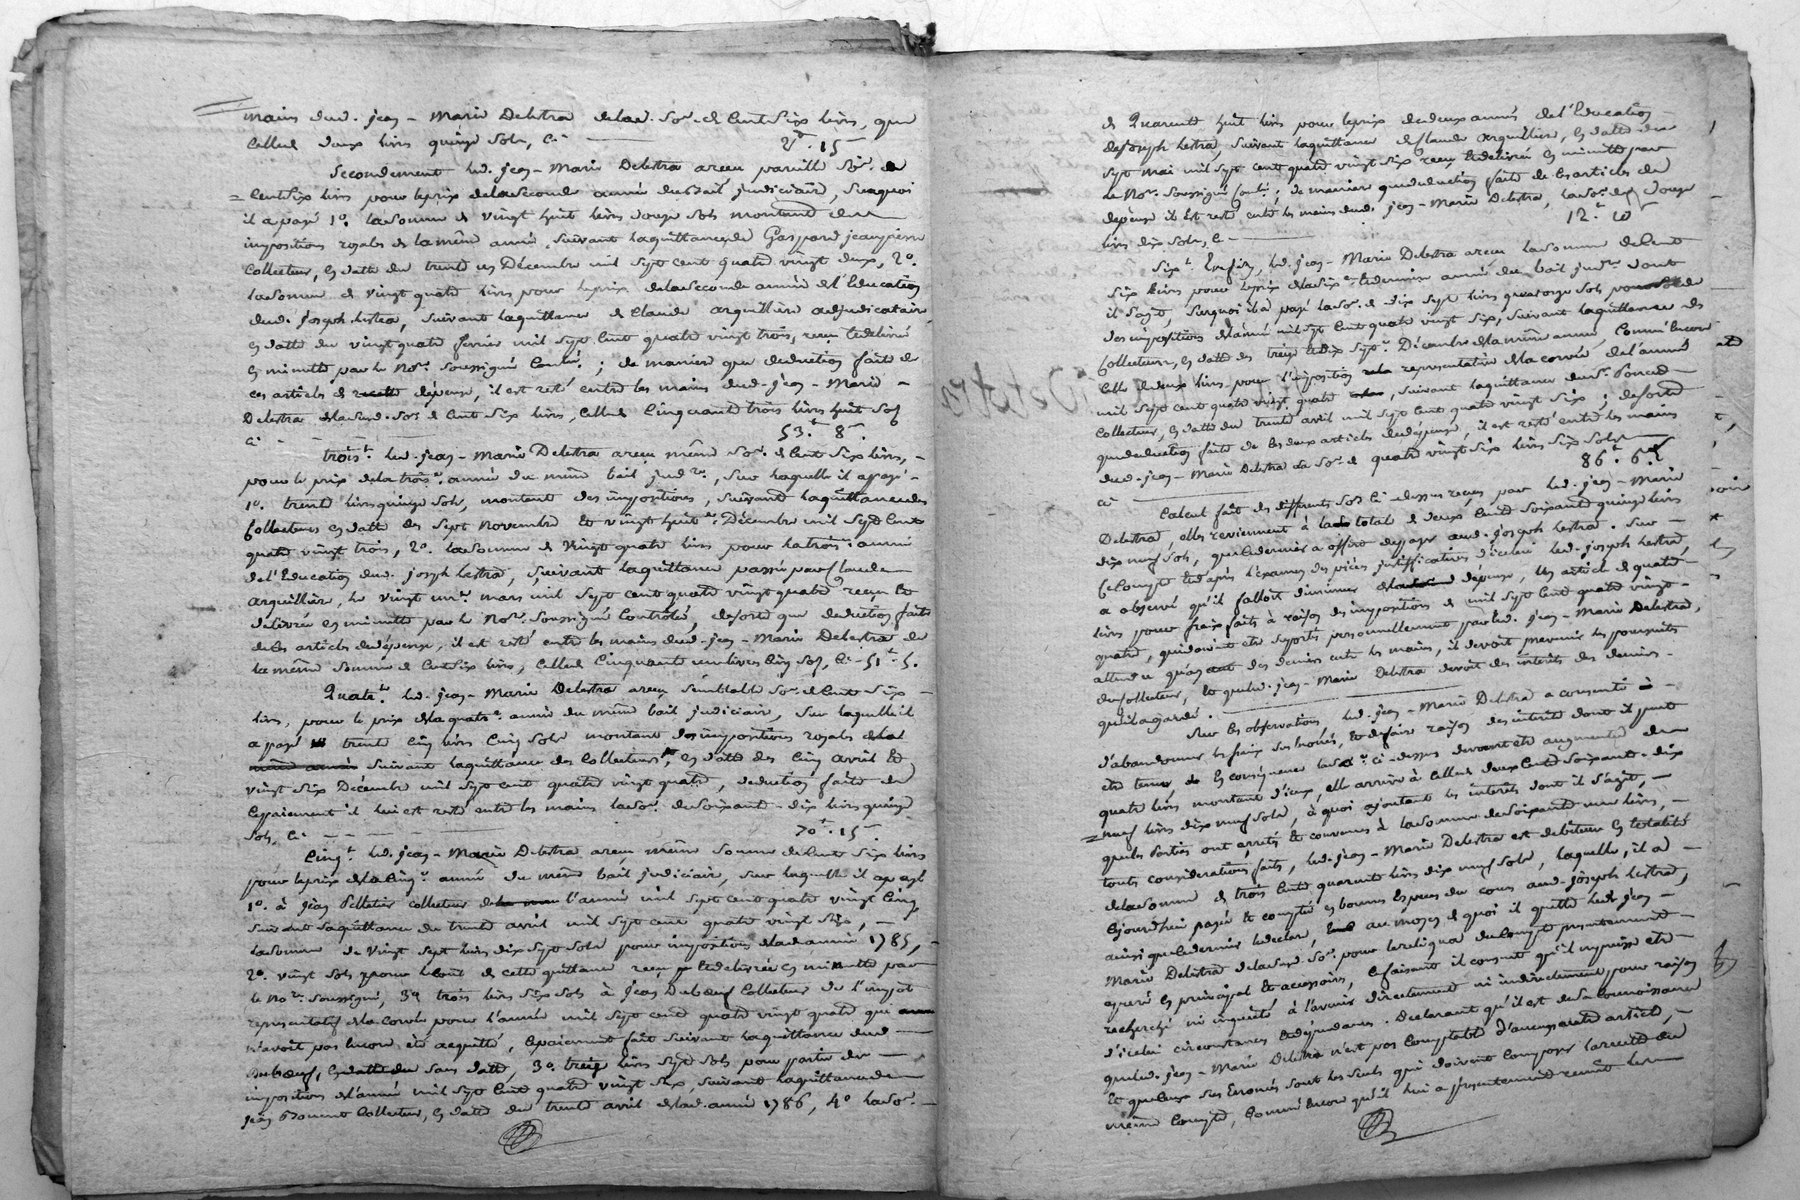 mains dud. jean - Marie Delestra delad. so.e de Cent Six livres, que
Celle de deux livres quinze sols, Ci 2.# 15
Secondement led. jean - Marie Delestra a recu pareille so.e de
Cent Six livres pour le prix de la seconde année du bail judiciaire, Surquoi
il a payé 1.o la somme de vingt huit livres douze sols montant des
impositions royales de la même année, suivant la quittance de Gaspard jeanpierre
Collecteur, en datte du trente un Décembre mil Sept cent quatre vingt deux, 2.o
la somme de vingt quatre livres pour le prix de la Seconde année de l'Education
dud. joseph Lestra, suivant la quittance de Claude arquillière adjudicataire,
en datte du vingt quatre fevrier mil Sept Cent quatre vingt trois, recue et delivrée
en minutte par le No.re Soussigné Contr.é ; de maniere que deduction faite de
ces articles de depense, il est resté entre les mains dud. jean - Marie
Delestra de lasusd. so.e de Cent Six livres, Celle de Cinquante trois livres huit sols
Ci 53.# 8.
trois.t led. jean - Marie Delestra a recu même So.e de Cent Six livres,
pour le prix de la trois.e année du même bail jud.re, sur laquelle il a payé
1.o trente livres quinze sols, montant des impositions, suivant la quittance des
Collecteurs en datte des Sept Novembre et vingt huit Décembre mil Sept Cent
quatre vingt trois, 2.o la somme de vingt quatre livres pour la trois.e année
de l'Education dud. joseph Lestra, suivant la quittance passée par Claude
arquillière, le vingt un mars mil Sept cent quatre vingt quatre recue et
delivrée en minutte par le No.re Soussigné Controlée, desorte que deduction faite
de ces articles de depense, il est resté entre les mains dud. jean - Marie Delestra de
la même Somme de Cent Six livres, Celle de Cinquante un livres Cinq Sols, Ci - 51.# 5.
Quatr.t led. jean - Marie Delestra a recu Semblable So.e de Cent Six
livres, pour le prix de la quatr.e année du même bail judiciaire, Sur laquelle il
a payé trente Cinq livres Cinq Sols montant des impositions royales
suivant la quittance des Collecteurs, en datte des Cinq avril et
vingt Six Décembre mil Sept cent quatre vingt quatre, deduction faite de
Ce paiement il lui est resté entre les mains la so.e de Soixante - dix livres quinze
Sols, Ci 70.# 15.
Cinq.t led. jean - Marie Delestra a recu même Somme de Cent Six livres
pour le prix de la Cinq.e année du même bail judiciaire, sur laquelle il a payé
1.o à jean Pelletier collecteur de l'année mil Sept cent quatre vingt Cinq
suivant sa quittance du trente avril mil Sept cent quatre vingt Six,
la somme de vingt Sept livres dix Sept Sols pour impositions de lad. année 1785,
2.o vingt Sols pour le coût de cette quittance recue et delivrée en minutte par
le No.re Soussigné, 3.o trois livres Six Sols à jean Duboeuf Collecteur de l'impot
representatif de la Corvée pour l'année mil Sept cent quatre vingt quatre qui
n'avoit pas encore été acquitté, Ce paiement fait suivant la quittance dud.
Duboeuf, sans datte, 3.o treize livres Sept Sols pour partie des
impositions de l'année mil Sept Cent quatre vingt Six, suivant la quittance de
jean Collecteur, en datte du trente avril de lad. année 1786, 4.o la So.e
de Quarente huit livres pour le prix des deux années de l'Education
de joseph Lestra, suivant la quittance de Claude arquillière, en datte du
Sept mai mil Sept Cent quatre vingt Six recue et delivrée en minutte par
le No.re Soussigné Contr.é ; de maniere que deduction faite de Ces articles de
depense il est resté entre les mains dud. jean - Marie Delestra, la So.e de douze
livres dix Sols, Ci - 12.# 10
Six.t Enfin, led. jean - Marie Delestra a recu la Somme de Cent
Six livres pour le prix de la Six.e et derniere année du bail jud.re dont
il S'agit, Surquoi il a payé la So.e de dix Sept livres quatorze Sols
des impositions de l'année mil Sept Cent quatre vingt Six, suivant la quittance des
Collecteurs, en datte des treize et dix Sept Décembre de la même année, Comme encore
Celle de deux livres pour l'imposition representative de la corvée de l'année
mil Sept Cent quatre vingt quatre, suivant la quittance du S.r
Collecteur, en datte du trente avril mil Sept Cent quatre vingt Six ; desorte
que deduction faite de Ces deux articles de depense, il est resté entre les mains
dud. jean - Marie Delestra la So.e de quatre vingt Six livres Six Sols
Ci 86.# 6.
Calcul fait des differents Sols Ci - dessus recues par led. jean - Marie
Delestra, elles reviennent à la total de deux Cent Soixante quinze livres
dix neuf Sols, que Ce dernier a offert de payer aud. joseph Lestra. Sur
Ce Compte et d'après l'examen des pièces justifficatives d'icelui led. joseph Lestra,
a observé qu'il falloit diminuer de depense, Un article de quatre
livres pour frais faits à raison des impositions de mil Sept cent quatre vingt
quatre, qui doivent etre Suportés personnellement par led. jean - Marie Delestra,
attendu qu'ayant des deniers entre les mains, il devoit prevenir les poursuites
du Collecteur, Et que led. jean - Marie Delestra devoit des interets des deniers
qu'il a gardé.
Sur les observations, led. jean - Marie Delestra a consenti à
d'abandonner les fraix Sus enoncés, Et de faire raison des interets dont il peut
etre tenu, En conséquence lad. so.e ci - dessus devant etre augmentée de
quatre livres montant d'iceux, elle arrive à Celle de deux Cent Soixante - dix
neuf livres dix neuf Sols, à quoi ajoutant les interets dont il S'agit,
que les Parties ont arretés Et convenus à la Somme de Soixante une livres,
toutes considerations faites, led. jean - Marie Delestra est debiteur En totalité
de la Somme de trois Cent quarente livres dix neuf Sols, laquelle, il a
Ejourd'hui payée Et comptée en bonnes Especes du cours aud. joseph Lestra,
ainsi que Ce dernier le declare, au moyen de quoi il quitte led. jean
Marie Delestra de lasusd. So.e pour le reliqua du Compte presentement
apuré en principal Et accessoires, Ce faisant il consent qu'il ne puisse etre
recherché ni inquieté à l'avenir directement ni indirectement pour raison
d'icelui circonstances Et dependances. Declarant qu'il est de Sa Connoissance
que led. jean - Marie Delestra n'est pas Comptable d'aucun autre article,
Et que Ceux Sus Enoncés Sont les Seuls qui doivent Composer la recette du
même Compte, Comme Encore qu'il lui a presentement remit les